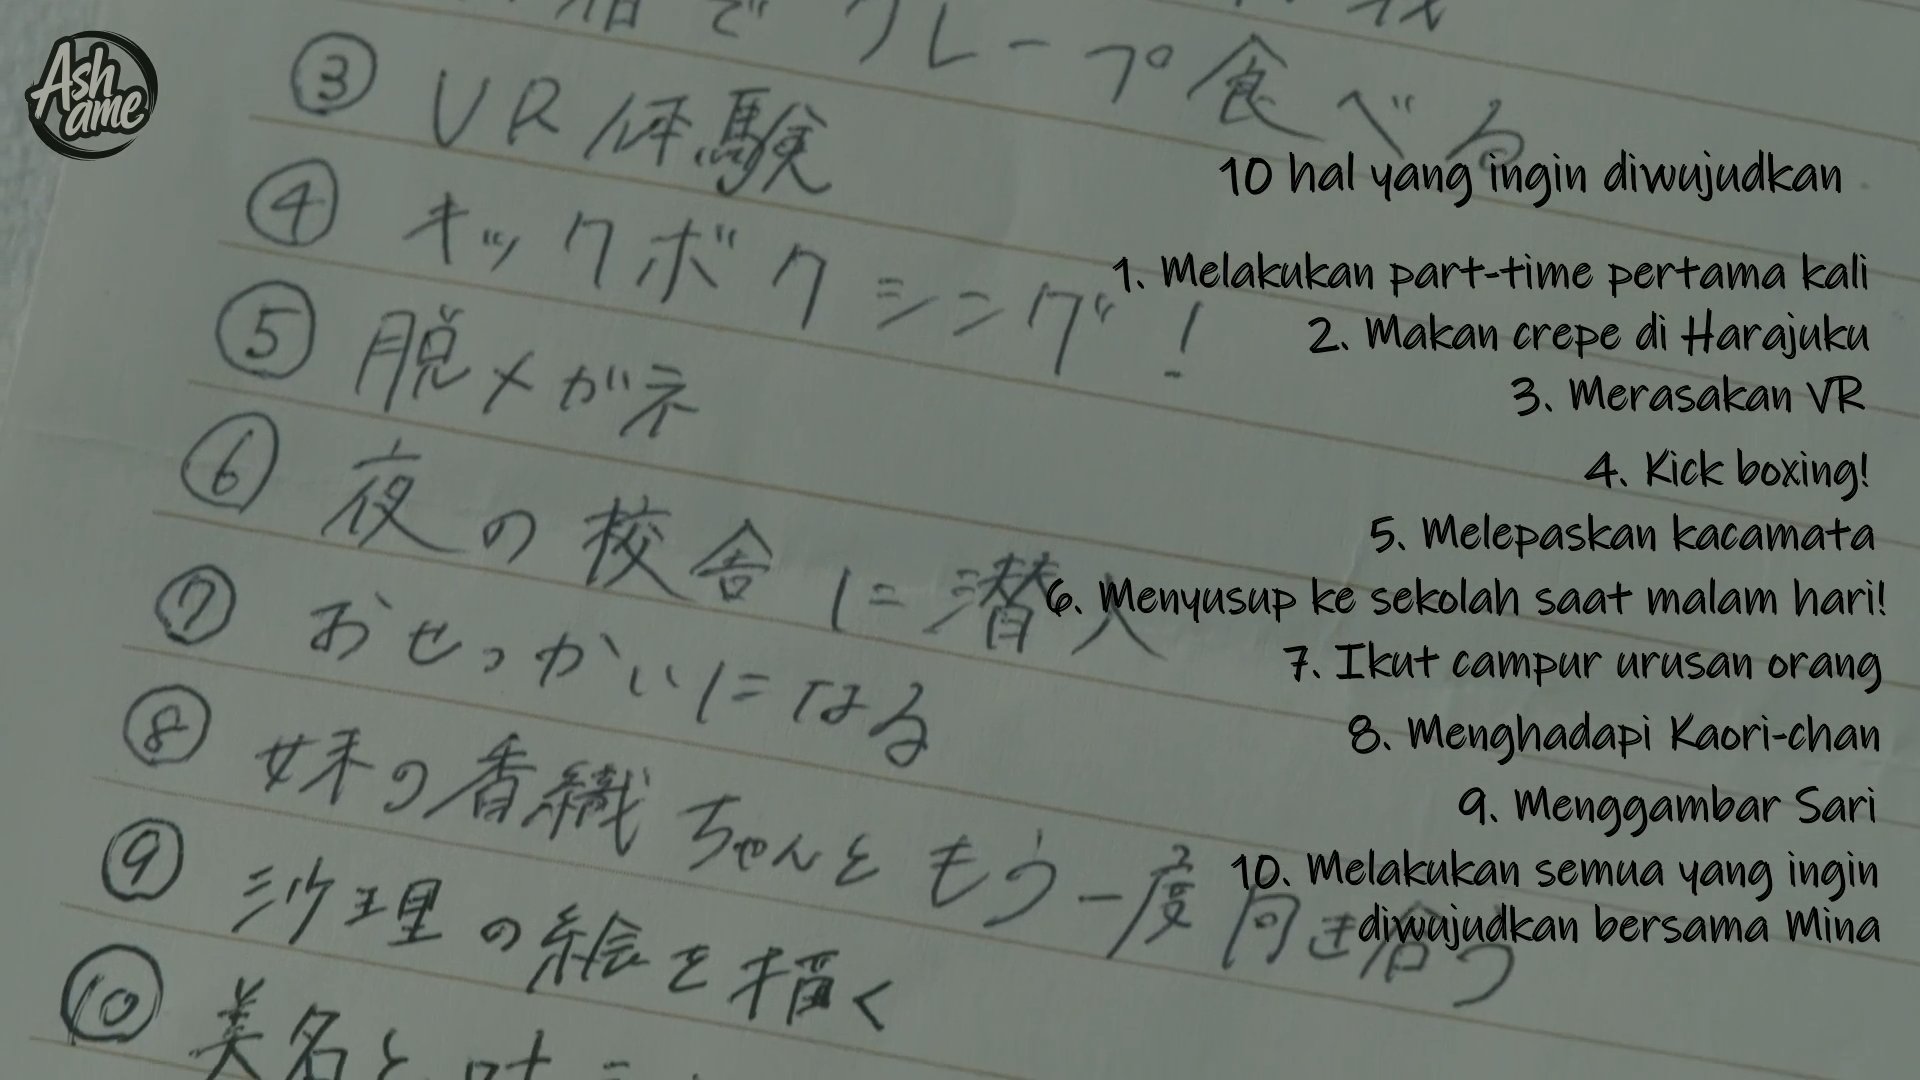 Ash
ame
で クレープ食べる
③ VR体験
④ キックボクシング!
⑤ 脱メガネ
⑥ 夜の校舎に潜入
⑦ おせっかいになる
⑧ 妹の香織ちゃんともう一度向き合う
⑨ 沙理の絵を描く
⑩ 美名と叶
10 hal yang ingin diwujudkan
1. Melakukan part-time pertama kali
2. Makan crepe di Harajuku
3. Merasakan VR
4. Kick boxing!
5. Melepaskan kacamata
6. Menyusup ke sekolah saat malam hari!
7. Ikut campur urusan orang
8. Menghadapi Kaori-chan
9. Menggambar Sari
10. Melakukan semua yang ingin
diwujudkan bersama Mina